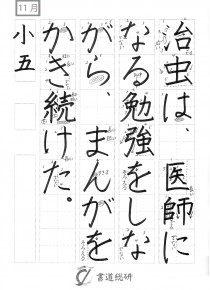 11月
治虫は、医師に
なる勉強をしな
がら、まんがを
かき続けた。
小五
書道総研